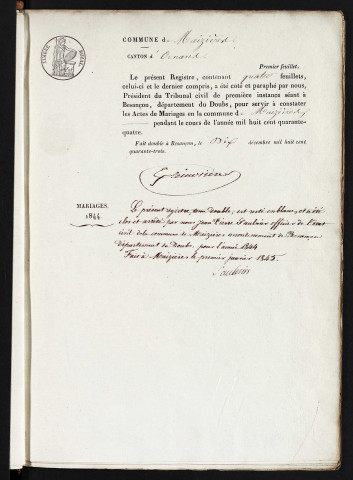 COMMUNE de Maizières
CANTON d'Ornans
Premier feuillet.
Le présent Registre, contenant quatre feuillets,
celui-ci et le dernier compris, a été coté et paraphé par nous,
Président du Tribunal civil de première instance séant à
Besançon, département du Doubs, pour servir à constater
les Actes de Mariages en la commune de Maizières,
pendant le cours de l'année mil huit cent quarante-
quatre.
Fait double à Besançon, le dix décembre mil huit cent
quarante-trois.
MARIAGES.
1844.
Le présent registre, double, est resté en blanc, et a été
clos et arrêté par nous Jean Pierre Saulnier officier de l'état
civil de la commune de Maizières arrondissement de Besançon
département du Doubs, pour l'année 1844
Fait à Maizières le premier janvier 1845.
Saulnier